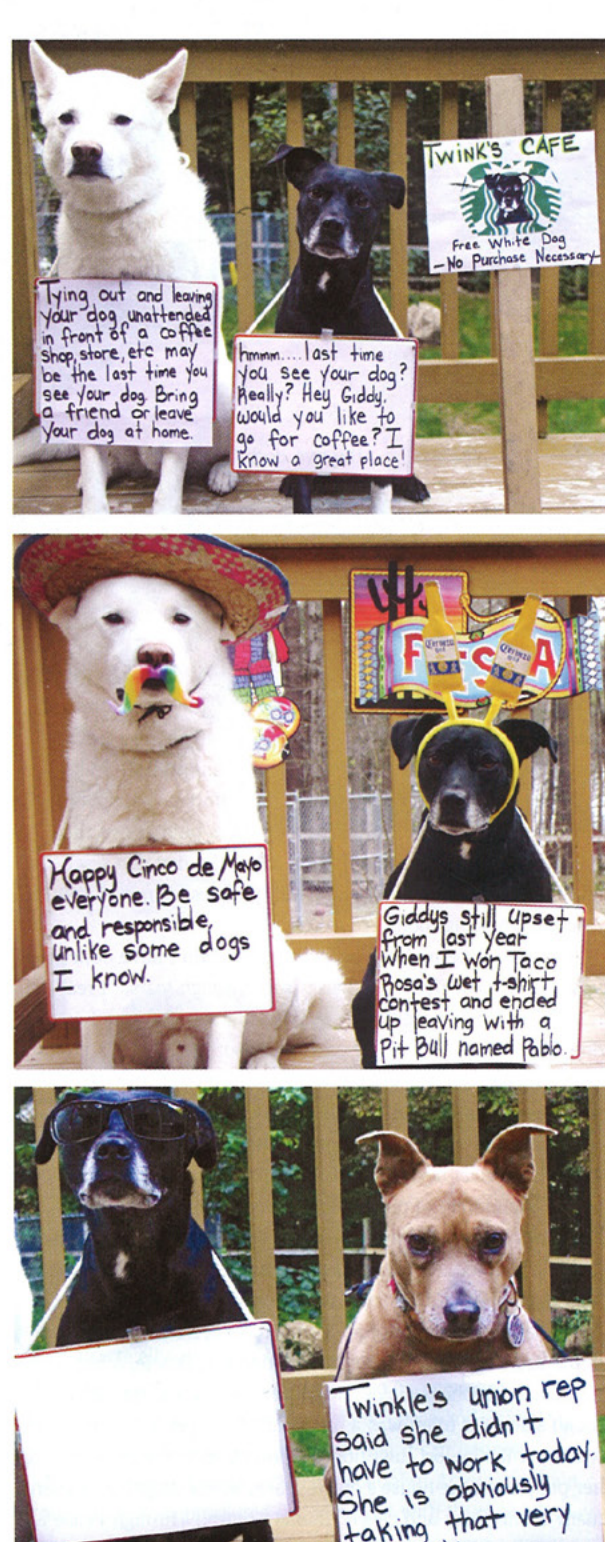 Tying out and leaving
your dog unattended
in front of a coffee
shop, store, etc may
be the last time you
see your dog. Bring
a friend or leave
your dog at home.
hmmm....last time
you see your dog?
Really? Hey Giddy,
would you like to
go for coffee? I
know a great place!
TWINK'S CAFE
Free White Dog
-No Purchase Necessary-
Happy Cinco de Mayo
everyone. Be safe
and responsible,
unlike some dogs
I know.
FIESTA
CERVEZA
CERVEZA
Giddys still upset
from last year
when I won Taco
Rosa's wet t-shirt
contest and ended
up leaving with a
Pit Bull named Pablo.
Twinkle's union rep
said she didn't
have to work today.
She is obviously
taking that very